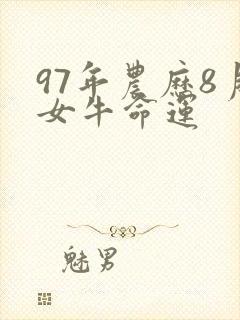 97年農曆8月
女牛命運
魅男